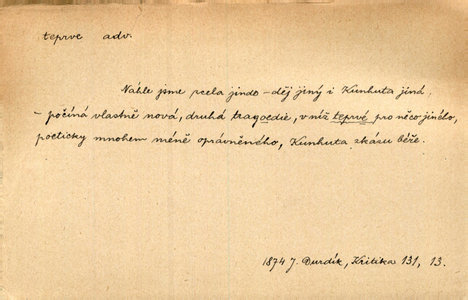 teprve adv.
Náhle jsme zcela jinde – děj jiný i Kunhuta jiná,
– počíná vlastně nová, druhá tragoedie, v níž teprvé pro něco jiného,
poeticky mnohem méně oprávněného, Kunhuta zkázu béře.
1874 J. Durdík, Kritika 131, 13.